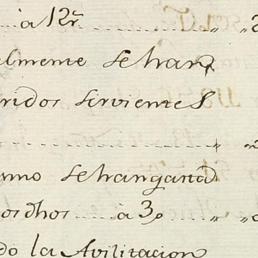 à 12 r̃ „ 2
almente se han
ridos sirvientes
„ 2
smo se han gastad
os dhos à 3„ „
do la Avilitacion